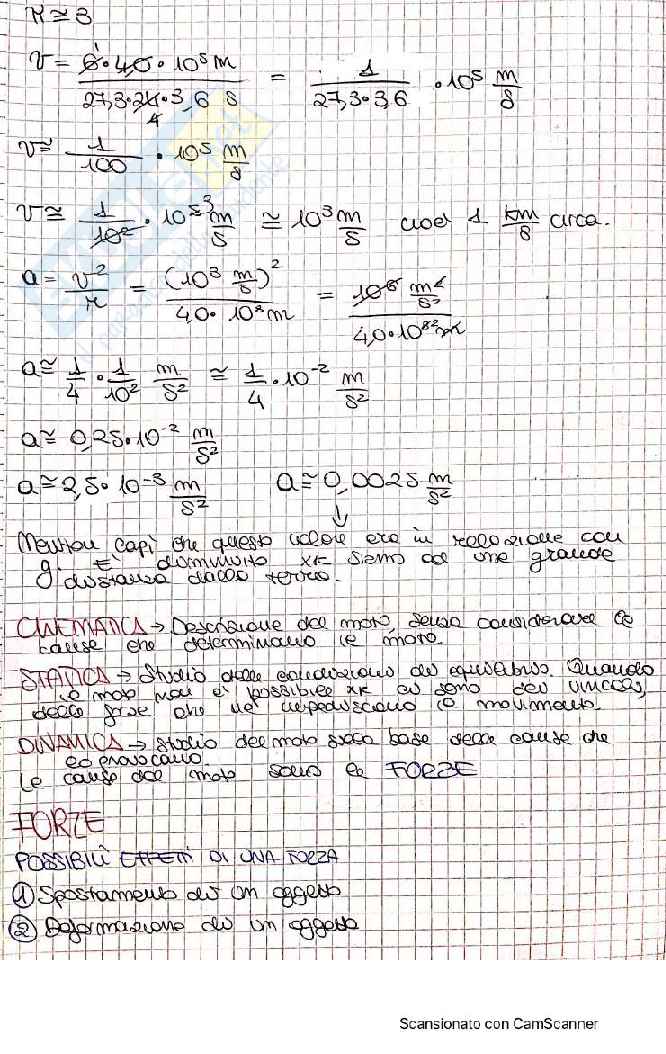 π ≃ 3
v = 6·40·10⁵ m / 27,3·24·3,6 s = 1 / 27,3·3,6 · 10⁵ m/s
v ≃ 1/100 · 10⁵ m/s
v ≃ 1/10² · 10⁵ m/s ≃ 10³ m/s cioè 1 km/s circa.
a = v²/r = (10³ m/s)² / 40·10⁸ m
a ≃ 1/4 · 1/10² m/s² ≃ 1/4 · 10⁻² m/s²
a ≃ 0,25·10⁻² m/s²
a ≃ 2,5·10⁻³ m/s² a ≃ 0,0025 m/s²
↓
Newton capì che questo valore era in relazione con
g. È diminuito xk siamo ad una grande
distanza dalla terra.
CINEMATICA → Descrizione del moto, senza considerare le
cause che determinano il moto.
STATICA → Studio delle condizioni di equilibrio. Quando
il moto non è possibile xk ci sono dei vincoli,
delle forze che ne impediscono il movimento.
DINAMICA → studio del moto sulla base delle cause che
lo provocano.
Le cause del moto sono le FORZE
FORZE
POSSIBILI EFFETTI DI UNA FORZA
① Spostamento di un oggetto
② Deformazione di un oggetto
Scansionato con CamScanner